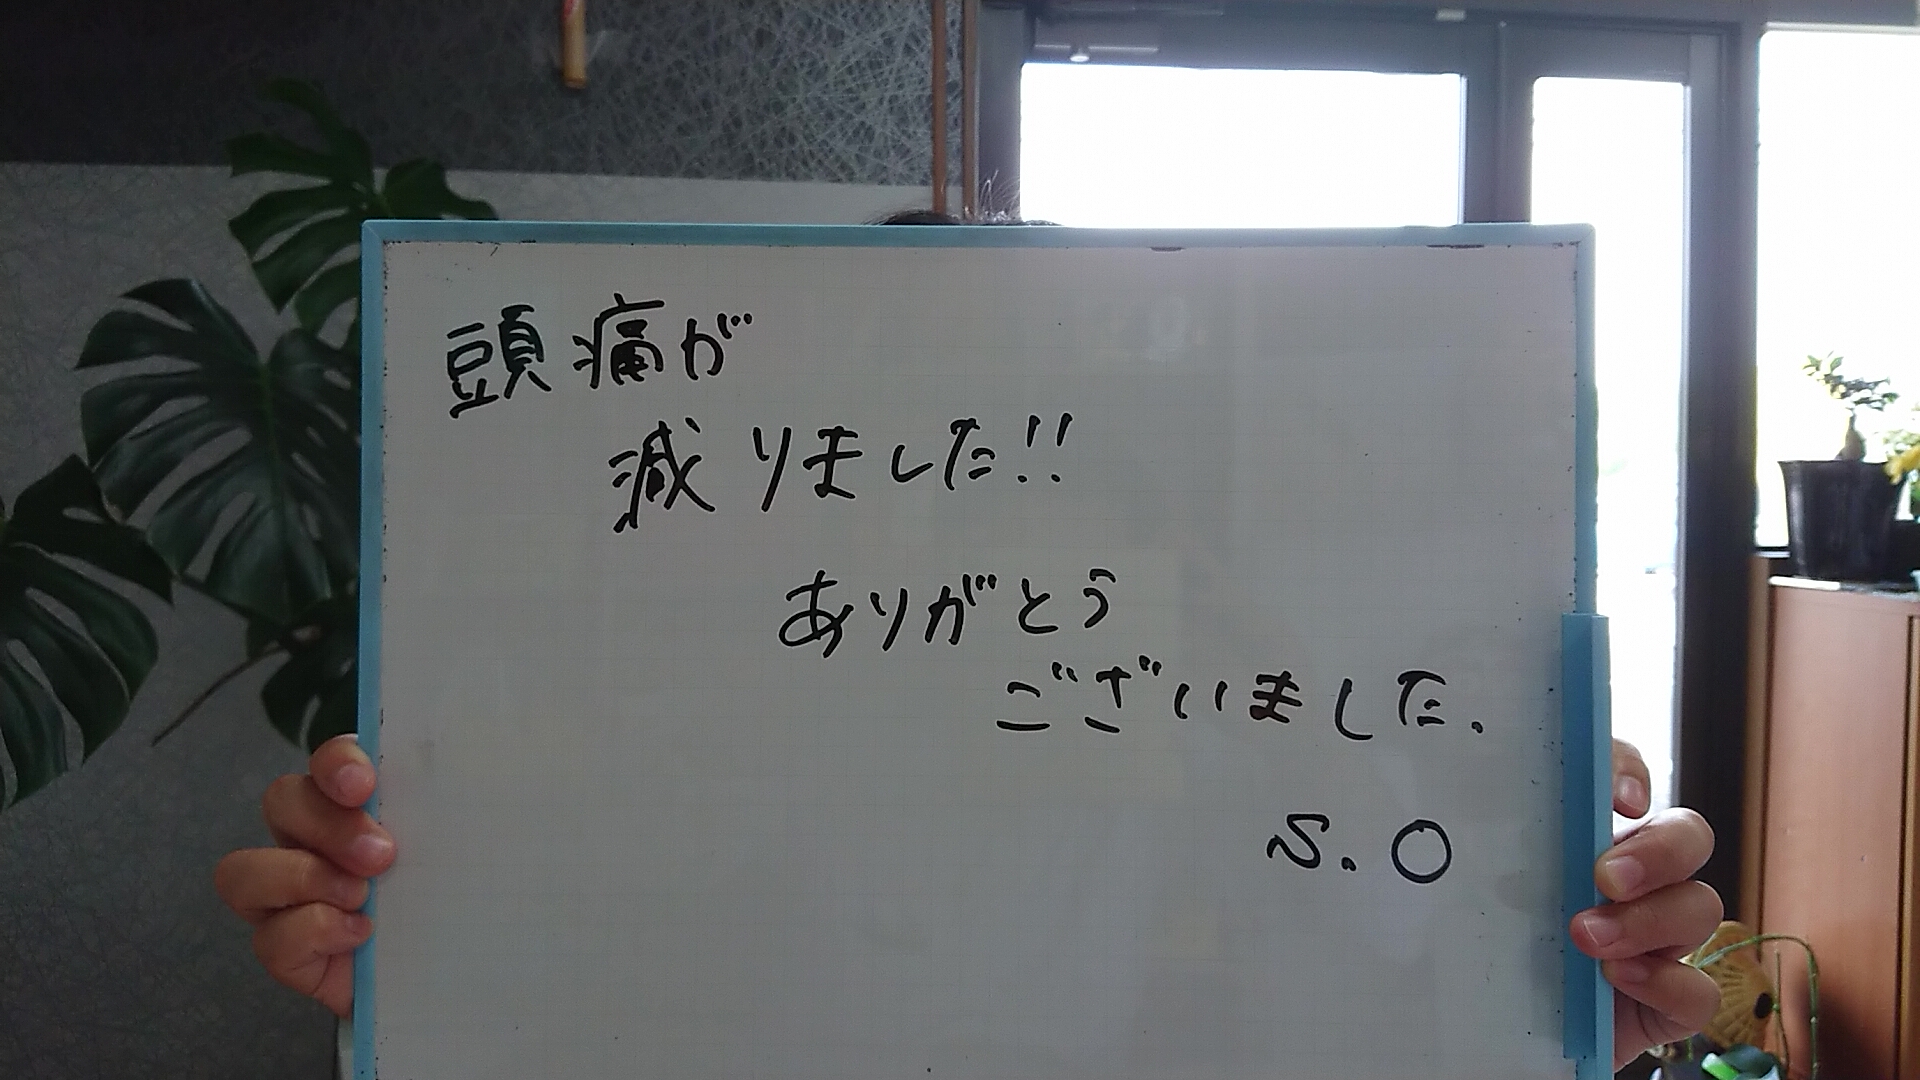 頭痛が
減りました!!
ありがとう
ございました.
S.O